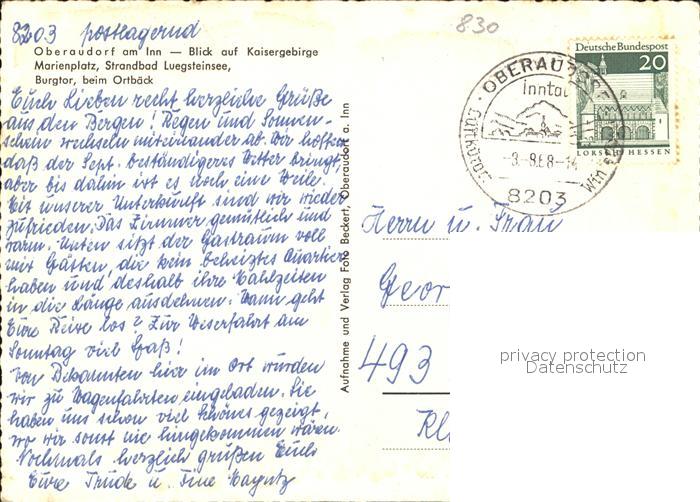 8203 postlagernd
830
Oberaudorf am Inn — Blick auf Kaisergebirge
Marienplatz, Strandbad Luegsteinsee,
Burgtor, beim Ortbäck
Euch Lieben recht herzliche Grüße
aus den Bergen! Regen und Sonnen-
schein wechseln miteinander ab. Wir hoffen
daß der Sept. beständigeres Wetter bringt,
aber bis dahin ist es noch eine Weile.
Mit unserer Unterkunft sind wir wieder
zufrieden. Das Zimmer gemütlich und
warm. Unten sitzt der Gastraum voll
mit Gästen, die kein beheiztes Quartier
haben und deshalb ihre Mahlzeiten
in die Länge ausdehnen. Wann geht
Eure Reise los? Zur Weserfahrt am
Sonntag viel Spaß!
Von Bekannten hier im Ort wurden
wir zu Wagenfahrten eingeladen. Sie
haben uns schon viel Schönes gezeigt,
wo wir sonst nie hingekommen wären.
Nochmals herzlich grüßen Euch
Eure Trude u.
Aufnahme und Verlag Foto Beckert, Oberaudorf a. Inn
OBERAUDORF
Inntal
-3.-8.68-14
8203
Deutsche Bundespost
20
LORSCH/HESSEN
Herrn u. Frau
Geor
493
Kl
privacy protection
Datenschutz